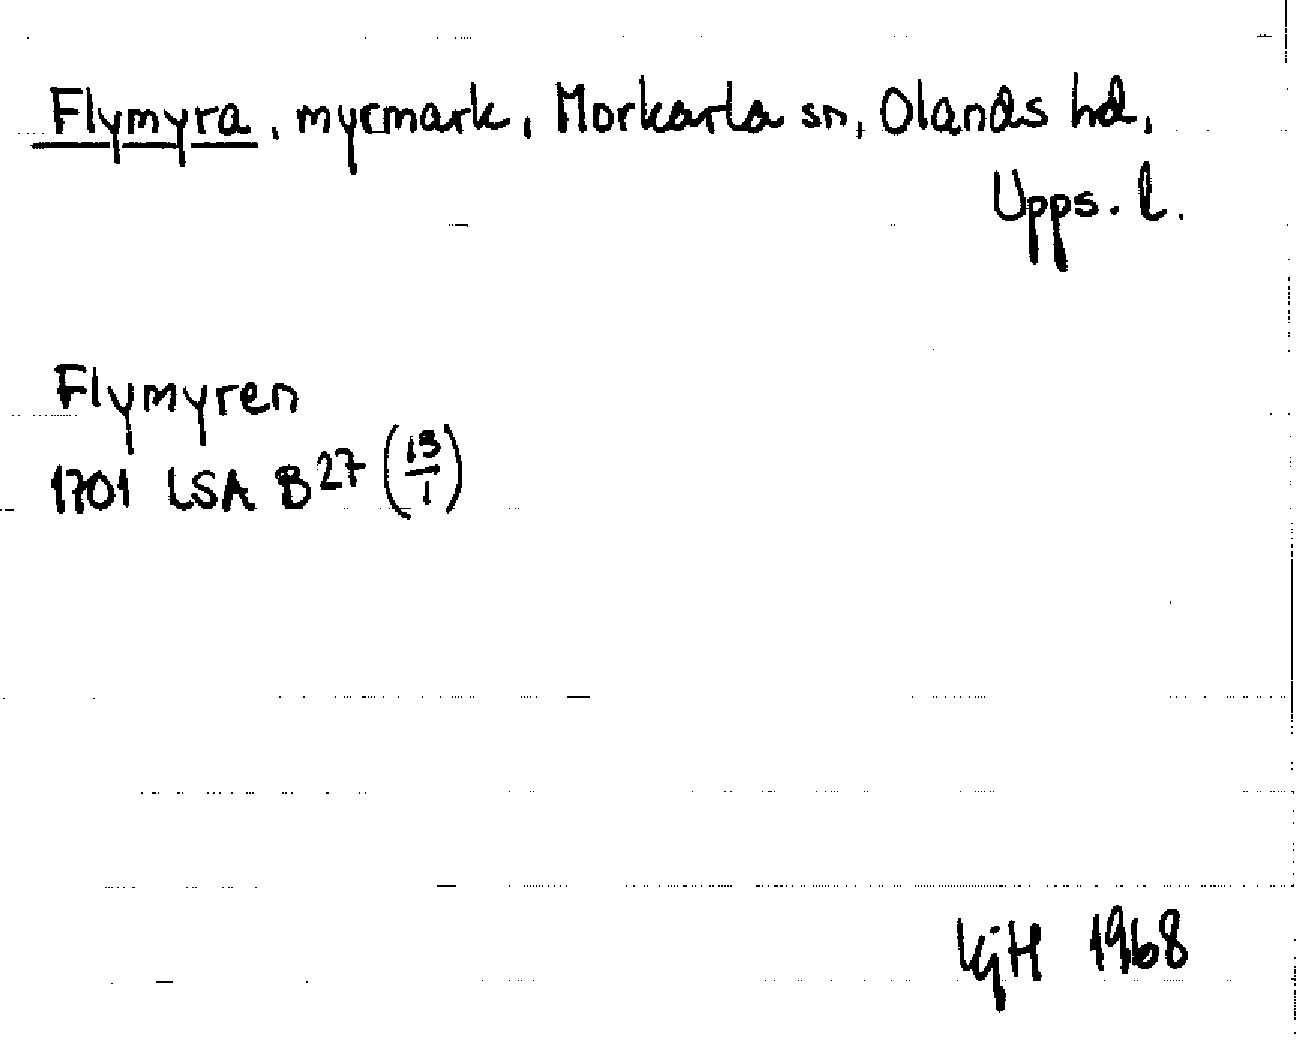 Flymyra, myrmark, Morkarla sn, Olands hd,
Upps. l.
Flymyren
1701 LSA B27 (13/1)
KjH 1968